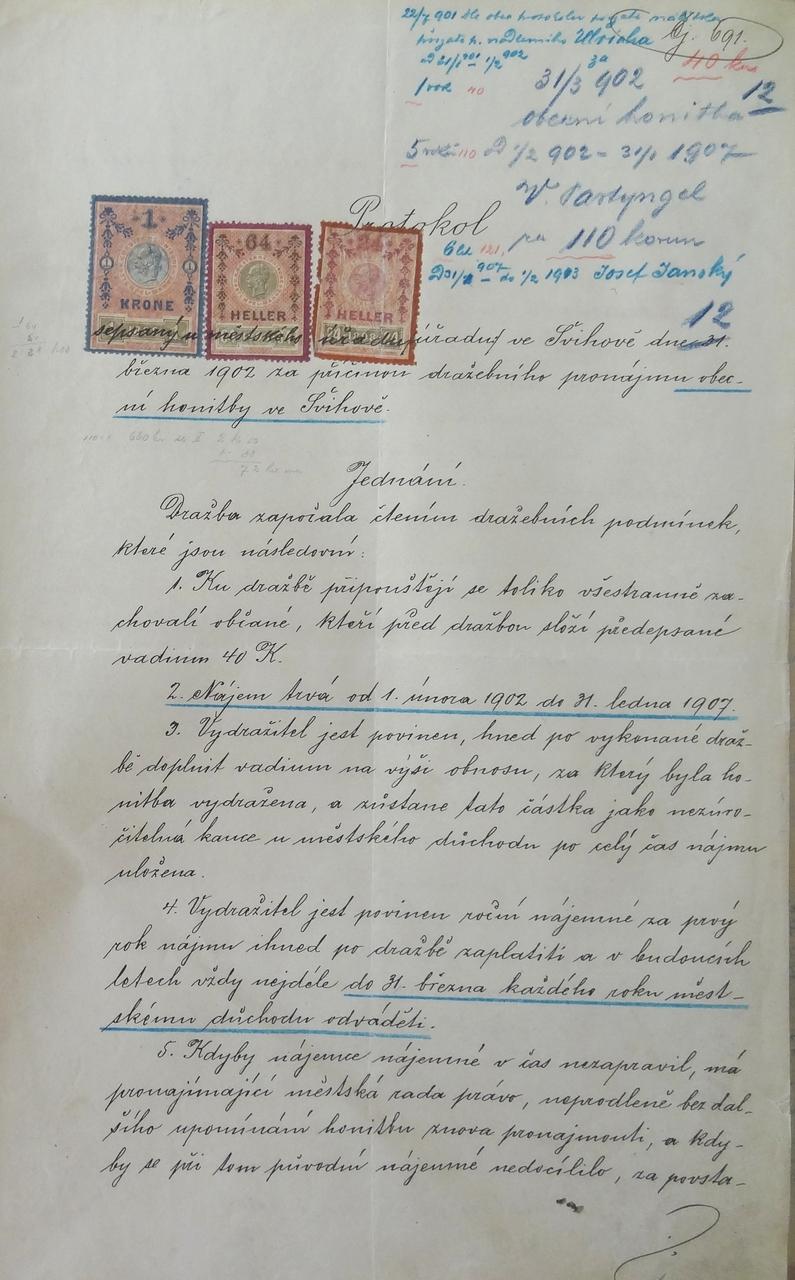 22/7 901 dle obec protokolu
Čj. 691.
Ulricha
40
1 rok 40
31/3 902
12
obecní honitba
5 roků 110 od 1/2 902 – 31/1 1907
V. Partyngel
Protokol
pr 110 korun
6 let 121,
Josef Janský
1
KRONE
64
HELLER
24
HELLER
12
sepsaný u městského úřadu úřadu ve Švihově dne 31.
března 1902 za příčinou dražebního pronájmu obec-
ní honitby ve Švihově.
Jednání.
Dražba započala čtením dražebních podmínek,
které jsou následovní:
1. Ku dražbě připouštějí se toliko všestranně za-
chovalí občané, kteří před dražbou složí předepsané
vadium 40 K.
2. Nájem trvá od 1. února 1902 do 31. ledna 1907.
3. Vydražitel jest povinen, hned po vykonané draž-
bě doplnit vadium na výši obnosu, za který byla ho-
nitba vydražena, a zůstane tato částka jako nezúro-
čitelná kauce u městského důchodu po celý čas nájmu
uložena.
4. Vydražitel jest povinen roční nájemné za prvý
rok nájmu ihned po dražbě zaplatiti a v budoucích
letech vždy nejdéle do 31. března každého roku měst-
skému důchodu odváděti.
5. Kdyby nájemce nájemné v čas nezapravil, má
pronajímající městská rada právo, neprodleně bez dal-
šího upomínání honitbu znova pronajmouti, a kdy-
by se při tom původní nájemné nedocílilo, za povsta-